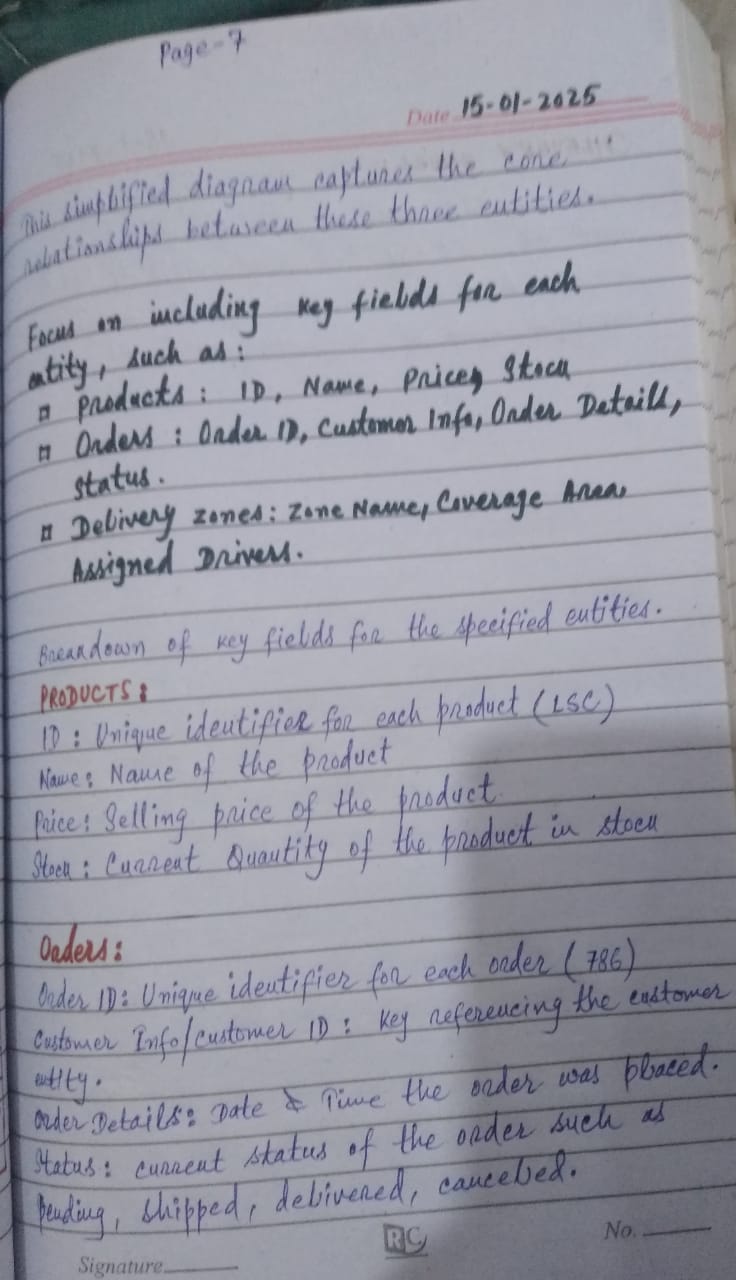 Page-7
Date 15-01-2025
This simplified diagram captures the core
relationships between these three entities.
Focus on including key fields for each
entity, such as:
Products: ID, Name, Price, Stock
Orders: Order ID, Customer Info, Order Details,
Status.
Delivery zones: Zone Name, Coverage Area,
Assigned Drivers.
Breakdown of key fields for the specified entities.
PRODUCTS:
ID: Unique identifier for each product (LSC)
Name: Name of the product
Price: Selling price of the product.
Stock: Current Quantity of the product in stock
Orders:
Order ID: Unique identifier for each order (786)
Customer Info/customer ID: Key referencing the customer
entity.
Order Details: Date & Time the order was placed.
Status: current status of the order such as
Pending, shipped, delivered, canceled.
RC
No.
Signature